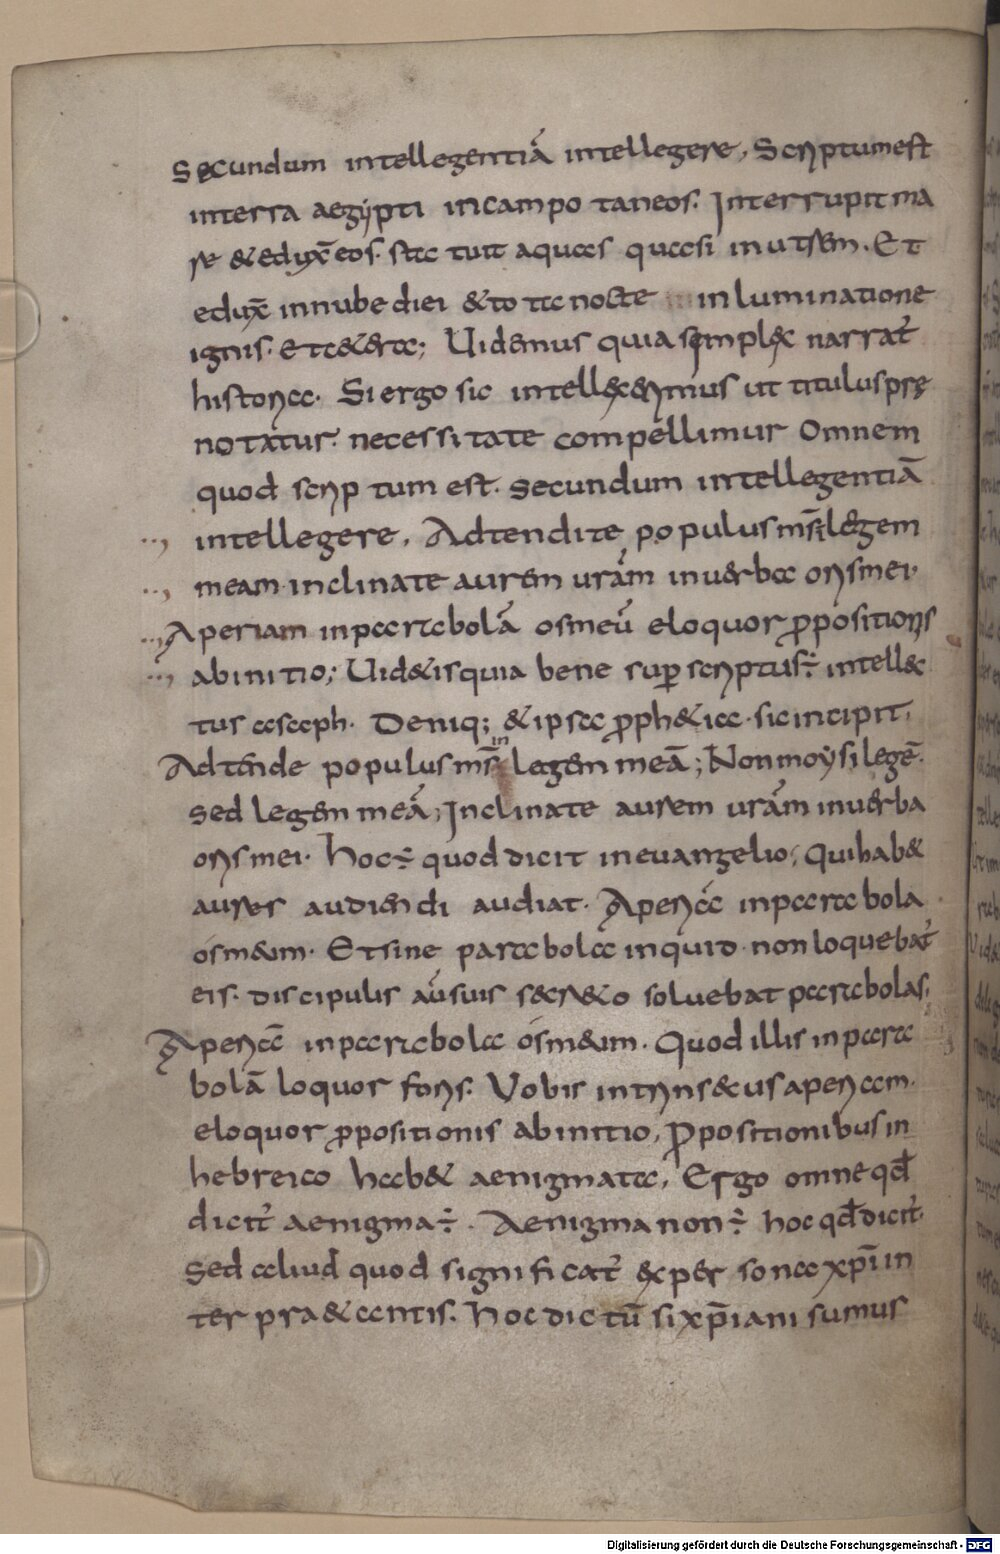 Secundum intellegentiā intellegere, Scriptum est
in terra aegypti in campo taneos. Interrupit ma
re & eduxͭ eos. statuit aquas quasi in utrem. Et
eduxͭ in nube diei & tota nocte in luminatione
ignis. Et cȩtera; Uidemus quia semplex narratͬ
historica. Si ergo sic intellexerimus ut titulus prę
notatur. necessitate compellimur Omnem
quod scriptum est. secundum intellegentiā
intellegere. Adtendite populus ms̄ legem
meam. inclinate aurem urām in uerba oris mei.
Aperiam in parabolā os meū eloquor ꝓpositionis
ab initio; Uid&is quia bene sup̱scriptus ÷ intellec
tus asaph. Deniq; & ipsa ꝓph&ia. sic incipit,
Adtende populus ms̄ in legem meā; Non moysi legē.
sed legem meā; Inclinate aurem urām in uerba
oris mei. Hoc ÷ quod dicit in euangelio, Qui hab&
aures audiendi audiat. Aperiā in parabola
os m&um. Et sine parabola inquid non loquebatͬ
eis. discipulis aū suis secr&o soluebat parabolas;
Aperiā in parabola os m&um. Quod illis in para
bolā loquor foris. Vobis intrinsecus aperiam.
eloquor ꝓpositionis ab initio, Ꝓpositionibus in
hebreico hab& aenigmata, Ergo omne qd̄
dicitͬ aenigma ÷. Aenigma non ÷ hoc qd̄ dicitͬ.
Sed aliud quod significatͬ ex persona xp̄i in
terpra&antis. Hoc dictū si xp̄iani sumus
Digitalisierung gefördert durch die Deutsche Forschungsgemeinschaft - DFG